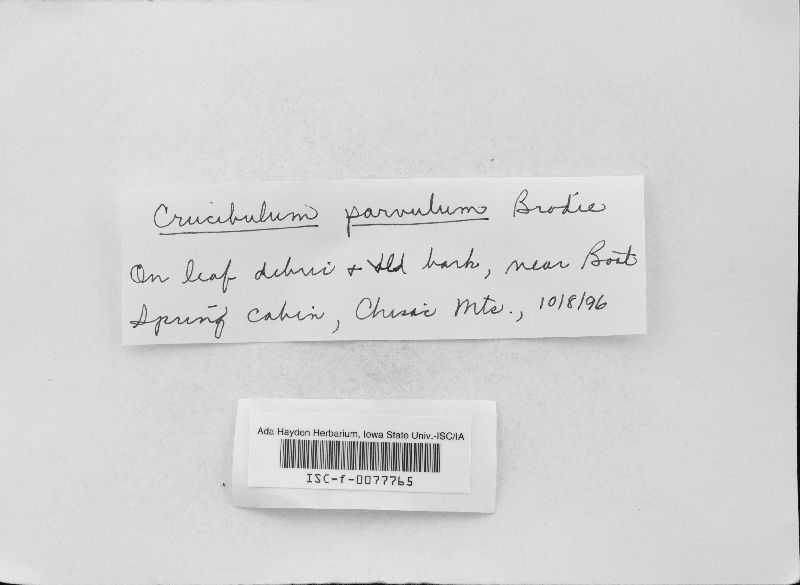 Crucibulum parvulum Brodie
On leaf debris + old bark, near Boot
Spring cabin, Chisos Mts., 10/8/96
Ada Hayden Herbarium, Iowa State Univ.-ISC/IA
ISC-f-0077765